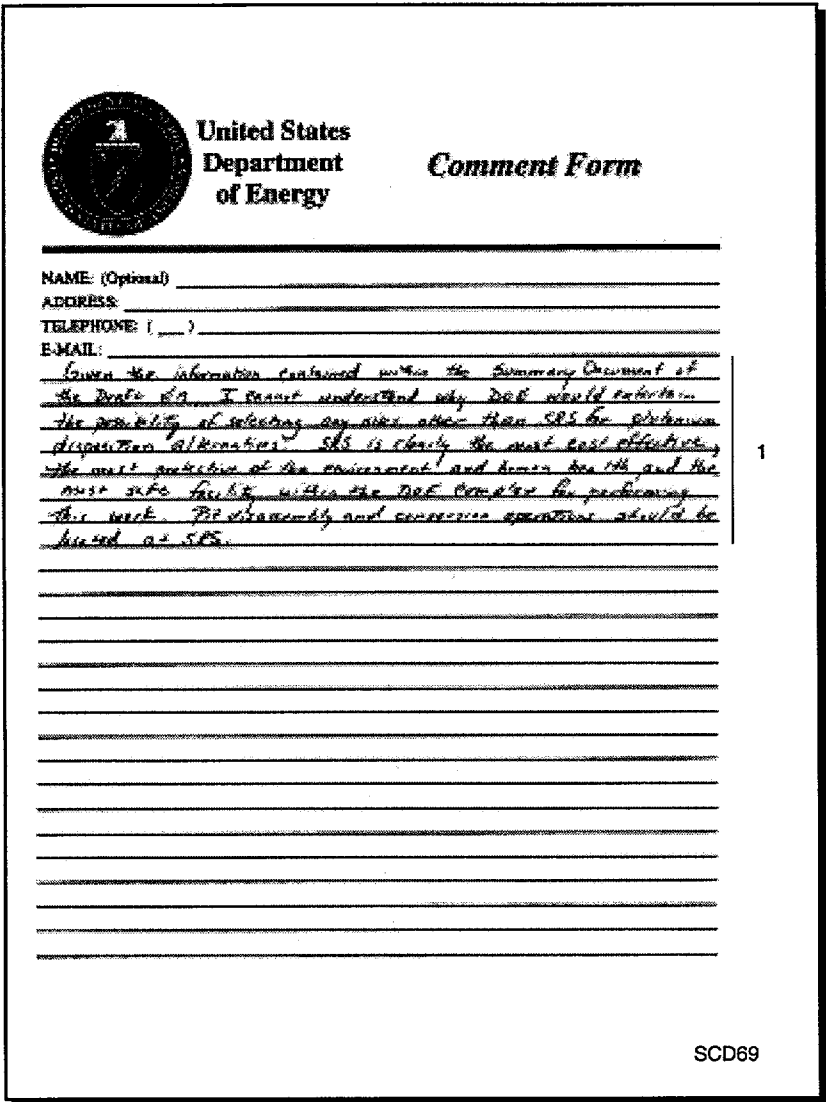 United States
Department
of Energy
Comment Form
NAME: (Optional)
ADDRESS:
TELEPHONE: ( )
E-MAIL:
Given the information contained within the Summary Document of
the Draft I cannot understand why DOE would entertain
the possibility of selecting any sites other than SRS for plutonium
disposition alternatives. SRS is clearly the most cost effective,
the most protective of the environment and human health, and the
most safe facility within the DOE Complex for performing
this work. Pit disassembly and conversion operations should be
located at SRS.
1
SCD69